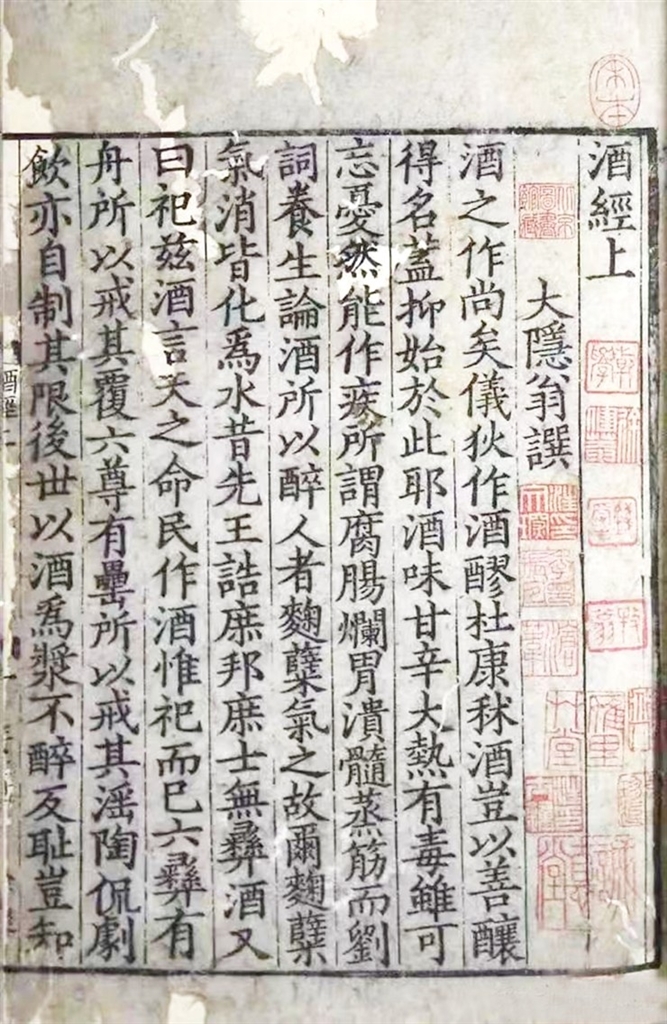 酒經上
大隱翁譔
酒之作尚矣儀狄作酒醪杜康秫酒豈以善釀
得名蓋抑始於此耶酒味甘辛大熱有毒雖可
忘憂然能作疾所謂腐腸爛胃潰髓蒸筋而劉
詞養生論酒所以醉人者麴糵氣之故爾麴糵
氣消皆化爲水昔先王誥庶邦庶士無彝酒又
曰祀茲酒言天之命民作酒惟祀而已六彝有
舟所以戒其覆六尊有罍所以戒其滛陶侃劇
飲亦自制其限後世以酒爲漿不醉反耻豈知